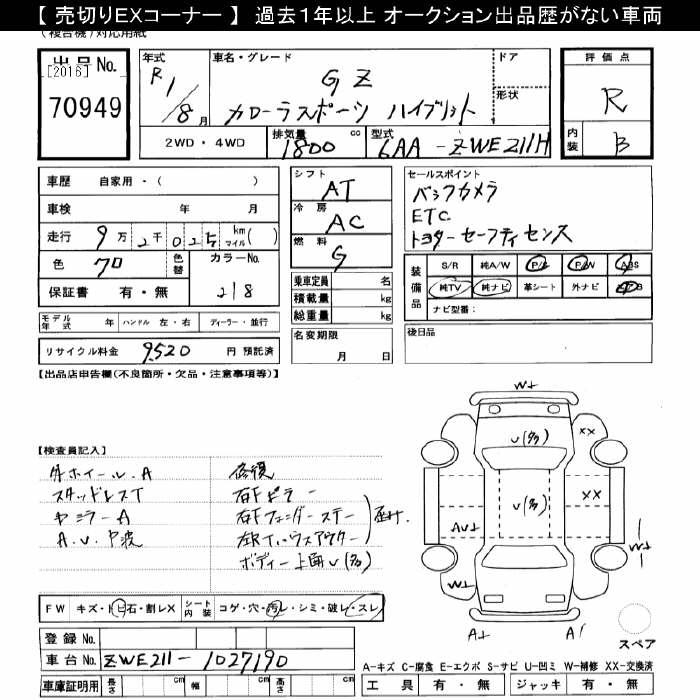 【 売切りEXコーナー 】 過去１年以上 オークション出品歴がない車両
(複合機)対応用紙
出品 No.
[2016]
70949
年式
R1/8月
車名・グレード
GZ
カローラスポーツ ハイブリット
ドア
形状
評価点
R
内装
B
2WD・4WD
排気量 1800 cc
型式 6AA-ZWE211H
車歴 自家用・( )
車検 年 月
走行 9万 2千 025 km マイル( )
色 クロ
色替
カラーNo. 218
保証書 有・無
シフト
AT
冷房
AC
燃料
G
乗車定員 名
積載量 kg
総重量 kg
セールスポイント
バックカメラ
ETC
トヨターセーフティセンス
装備品
S/R 純A/W P/S P/W ABS
純TV 純ナビ 革シート 外ナビ
ナビ型番：
モデル年式 年 ハンドル 左・右 ディーラー・並行
リサイクル料金 9520 円 預託済
名変期限
月 日
後日品
【出品店申告欄(不良箇所・欠品・注意事項等)】
【検査員記入】
外ホイール.A
スタッドレスT
ヤミラーA
A.U.P波
修復
右Fピラー
右Fフェンダーステー
ボディー上面U(多)
W
XX
U(多)
XX
U(多)
AU
W
W
W
A
A
スペア
FW キズ・トビ石・割レX シート内装 コゲ・穴・汚レ・シミ・破レ・スレ
登録 No.
車台 No. ZWE211-1027190
車庫証明用 長さ cm 幅 cm 高さ cm
A-キズ C-腐食 E-エクボ S-サビ U-凹ミ W-補修 XX-交換済
工具 有・無 ジャッキ 有・無